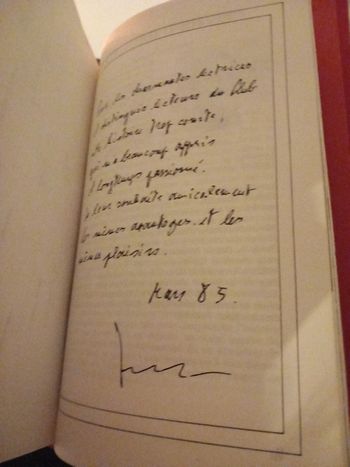 Pour les charmantes lectrices
et distingués lecteurs du Club
cette histoire trop courte,
qui m'a beaucoup appris
et longtemps passionné.
Je leur souhaite amicalement
les mêmes avantages et les
mêmes plaisirs.
Mars 85.